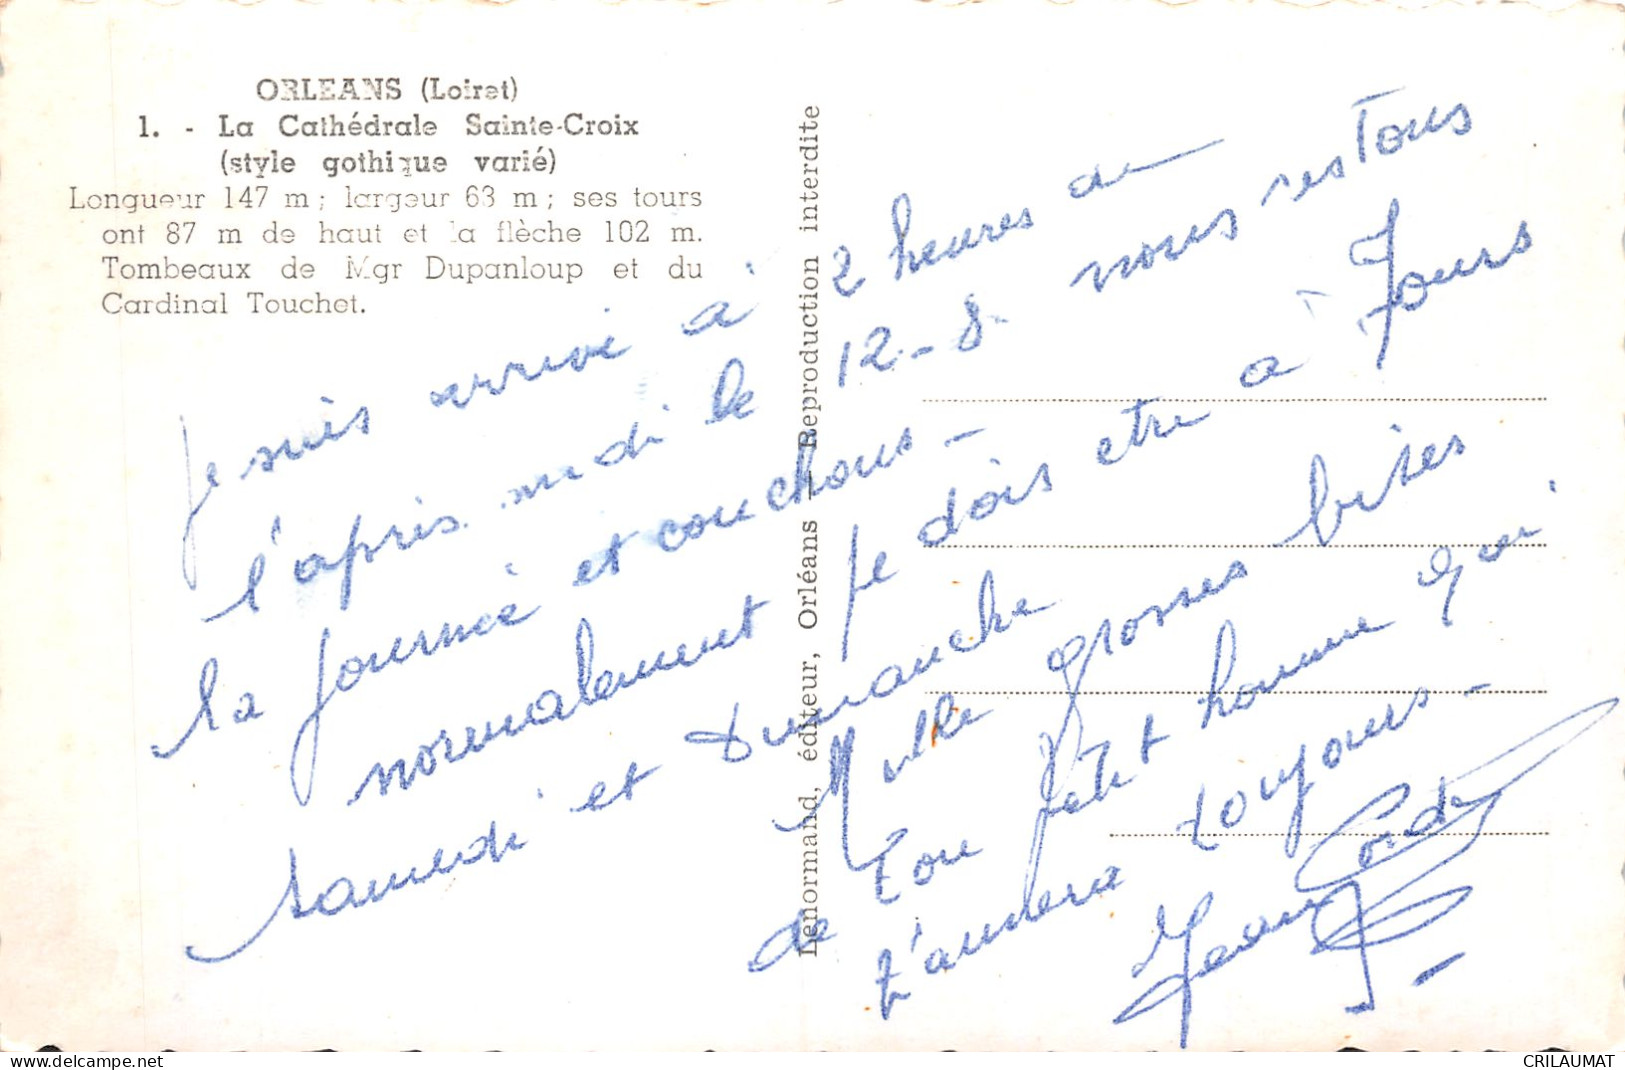 ORLEANS (Loiret)
1. - La Cathédrale Sainte-Croix
(style gothique varié)
Longueur 147 m ; largeur 63 m ; ses tours
ont 87 m de haut et la flèche 102 m.
Tombeaux de Mgr Dupanloup et du
Cardinal Touchet.
Lenormand, éditeur, Orléans — Reproduction interdite
Je suis arrivé à 2 heures de
l'après midi le 12-8 nous restons
la journée et couchons -
normalement je dois etre à Tours
samedi et Dimanche
Mille grosses bises
de ton petit homme qui
t'aimera toujours -
Jean
www.delcampe.net
CRILAUMAT